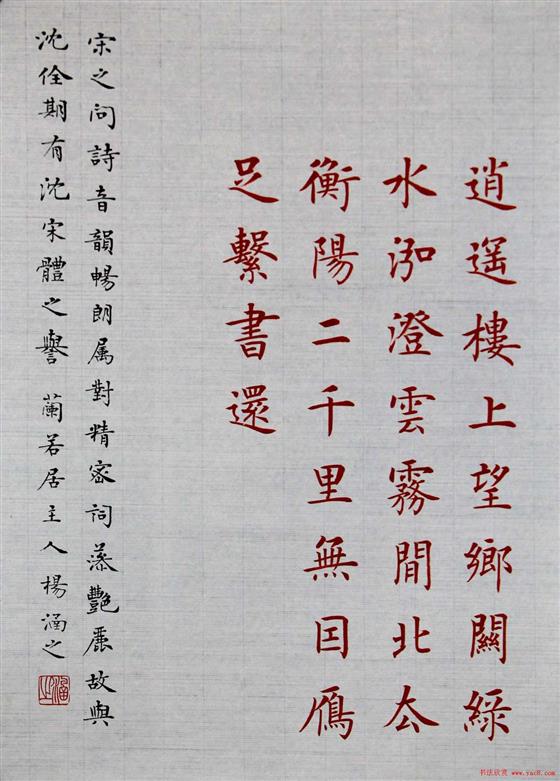 逍遥樓上望鄉關綠
水泓澄雲霧間北去
衡陽二千里無因鴈
足繫書還
宋之问詩音韻暢朗属對精密词藻艷麗故與
沈佺期有沈宋體之譽 蘭若居主人楊涵之
涵之
书法欣赏
www.yac8.com